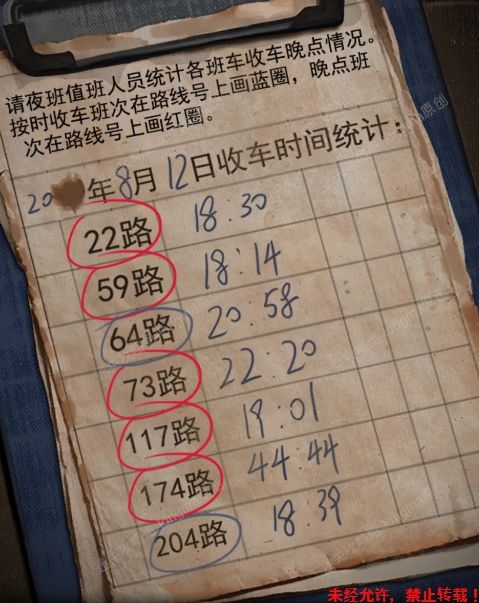 请夜班值班人员统计各班车收车晚点情况。
按时收车班次在路线号上画蓝圈，晚点班
次在路线号上画红圈。
20 年8月12日收车时间统计：
22路 18:30
59路 18:14
64路 20:58
73路 22:20
117路 19:01
174路 44:44
204路 18:39
未经允许，禁止转载！